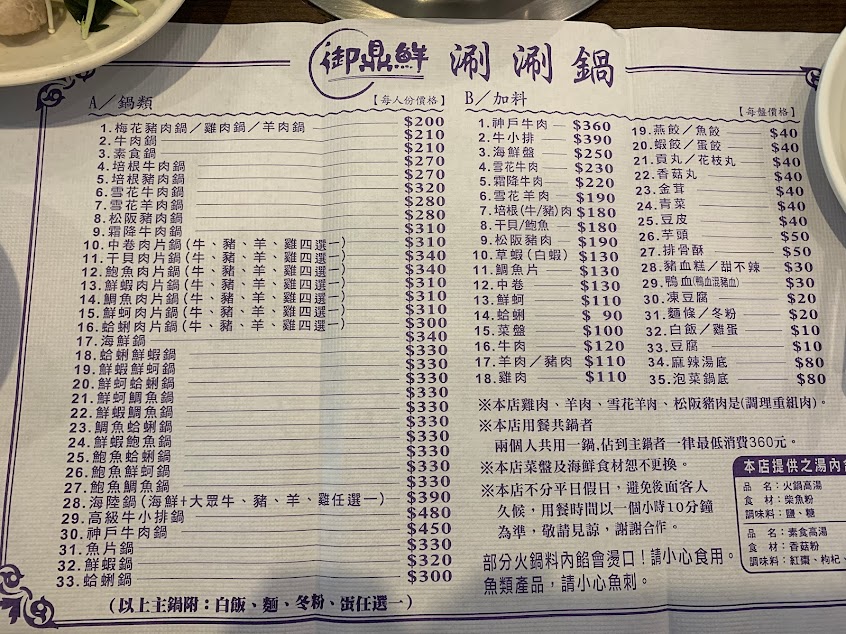 御鼎鮮 涮涮鍋
A／鍋類 【每人份價格】
1.梅花豬肉鍋／雞肉鍋／羊肉鍋 $200
2.牛肉鍋 $210
3.素食鍋 $210
4.培根牛肉鍋 $270
5.培根豬肉鍋 $270
6.雪花牛肉鍋 $320
7.雪花羊肉鍋 $280
8.松阪豬肉鍋 $280
9.霜降牛肉鍋 $310
10.中卷肉片鍋(牛、豬、羊、雞四選一) $310
11.干貝肉片鍋(牛、豬、羊、雞四選一) $340
12.鮑魚肉片鍋(牛、豬、羊、雞四選一) $340
13.鮮蝦肉片鍋(牛、豬、羊、雞四選一) $310
14.鯛魚肉片鍋(牛、豬、羊、雞四選一) $310
15.鮮蚵肉片鍋(牛、豬、羊、雞四選一) $310
16.蛤蜊肉片鍋(牛、豬、羊、雞四選一) $300
17.海鮮鍋 $340
18.蛤蜊鮮蝦鍋 $330
19.鮮蝦鮮蚵鍋 $330
20.鮮蚵蛤蜊鍋 $330
21.鮮蚵鯛魚鍋 $330
22.鮮蝦鯛魚鍋 $330
23.鯛魚蛤蜊鍋 $330
24.鮮蝦鮑魚鍋 $330
25.鮑魚蛤蜊鍋 $330
26.鮑魚鮮蚵鍋 $330
27.鮑魚鯛魚鍋 $330
28.海陸鍋(海鮮+大眾牛、豬、羊、雞任選一) $390
29.高級牛小排鍋 $480
30.神戶牛肉鍋 $450
31.魚片鍋 $330
32.鮮蝦鍋 $320
33.蛤蜊鍋 $300
(以上主鍋附：白飯、麵、冬粉、蛋任選一)
B／加料 【每盤價格】
1.神戶牛肉 $360
2.牛小排 $390
3.海鮮盤 $250
4.雪花牛肉 $230
5.霜降牛肉 $220
6.雪花羊肉 $190
7.培根(牛/豬)肉 $180
8.干貝/鮑魚 $180
9.松阪豬肉 $190
10.草蝦(白蝦) $130
11.鯛魚片 $130
12.中卷 $130
13.鮮蚵 $110
14.蛤蜊 $ 90
15.菜盤 $100
16.牛肉 $120
17.羊肉／豬肉 $110
18.雞肉 $110
19.燕餃／魚餃 $40
20.蝦餃／蛋餃 $40
21.貢丸／花枝丸 $40
22.香菇丸 $40
23.金茸 $40
24.青菜 $40
25.豆皮 $40
26.芋頭 $50
27.排骨酥 $50
28.豬血糕／甜不辣 $30
29.鴨血(鴨血混豬血) $30
30.凍豆腐 $20
31.麵條／冬粉 $20
32.白飯／雞蛋 $10
33.豆腐 $10
34.麻辣湯底 $80
35.泡菜鍋底 $80
※本店雞肉、羊肉、雪花羊肉、松阪豬肉是(調理重組肉)。
※本店用餐共鍋者
兩個人共用一鍋,佔到主鍋者一律最低消費360元。
※本店菜盤及海鮮食材恕不更換。
※本店不分平日假日，避免後面客人
久候，用餐時間以一個小時10分鐘
為準，敬請見諒，謝謝合作。
部分火鍋料內餡會燙口！請小心食用。
魚類產品，請小心魚刺。
本店提供之湯內
品 名：火鍋高湯
食 材：柴魚粉
調味料：鹽、糖
品 名：素食高湯
食 材：香菇粉
調味料：紅棗、枸杞、